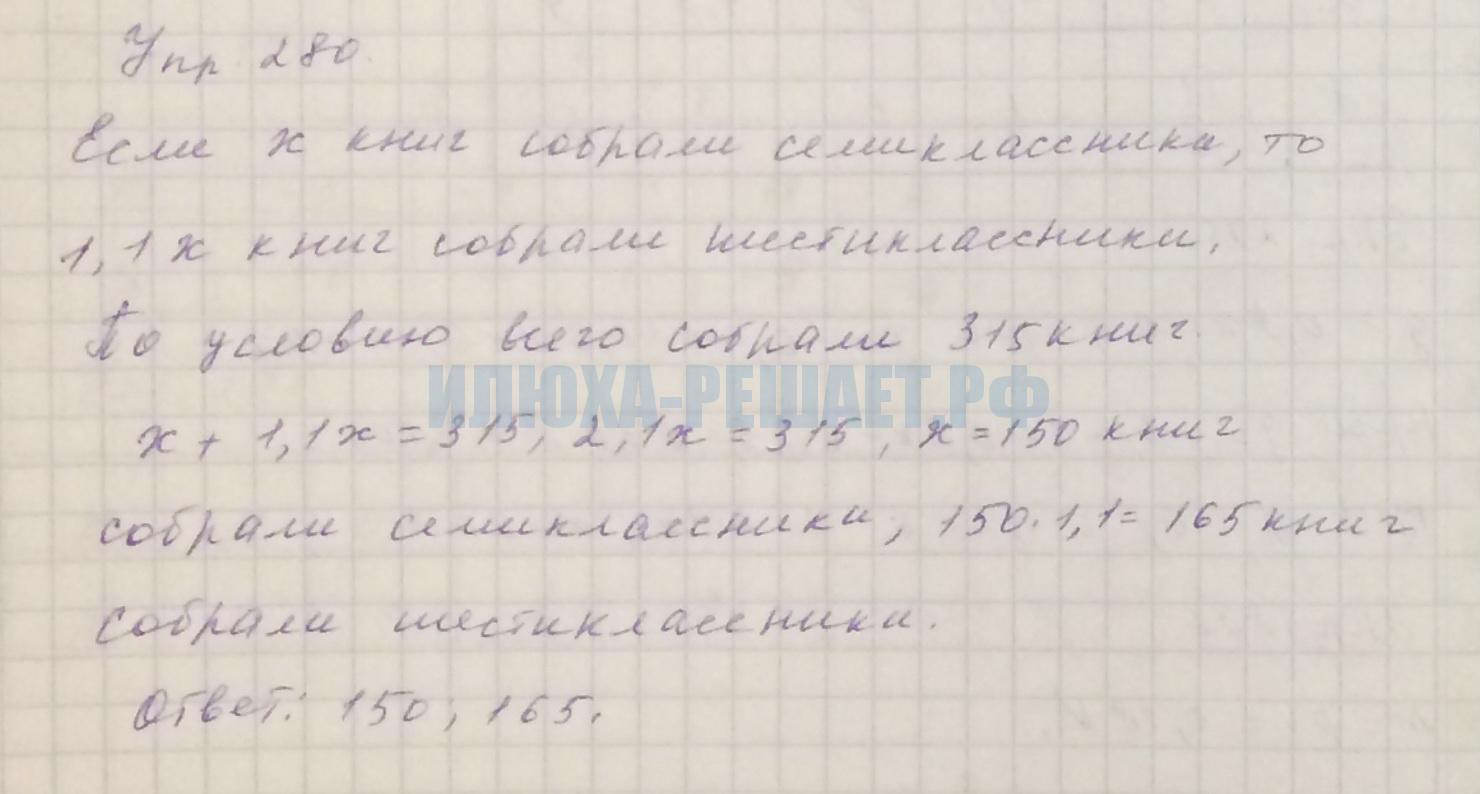 Упр 280.
Если х книг собрали семиклассники, то
1,1х книг собрали шестиклассники.
По условию всего собрали 315 книг.
ИЛЮХА-РЕШАЕТ.РФ
х + 1,1х = 315, 2,1х = 315, х = 150 книг
собрали семиклассники, 150·1,1 = 165 книг
собрали шестиклассники.
Ответ: 150; 165.